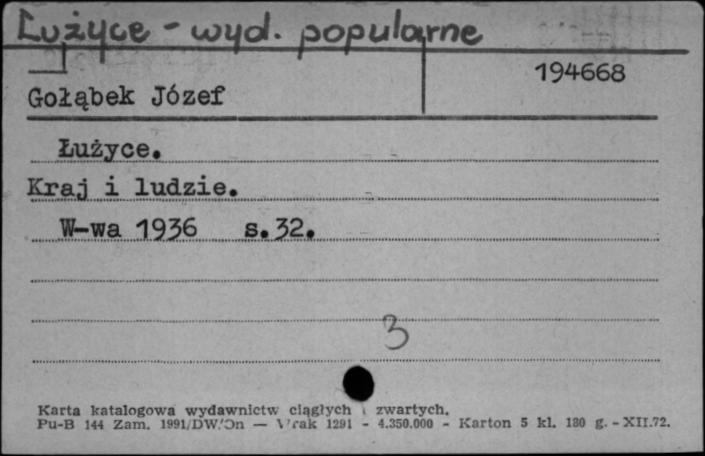 Łużyce - wyd. popularne
194668
Gołąbek Józef
Łużyce.
Kraj i ludzie.
W-wa 1936 s.32.
3
Karta katalogowa wydawnictw ciągłych i zwartych.
Pu-B 144 Zam. 1991/DW/On — 1291 - 4.350.000 - Karton 5 kl. 180 g. - XII.72.